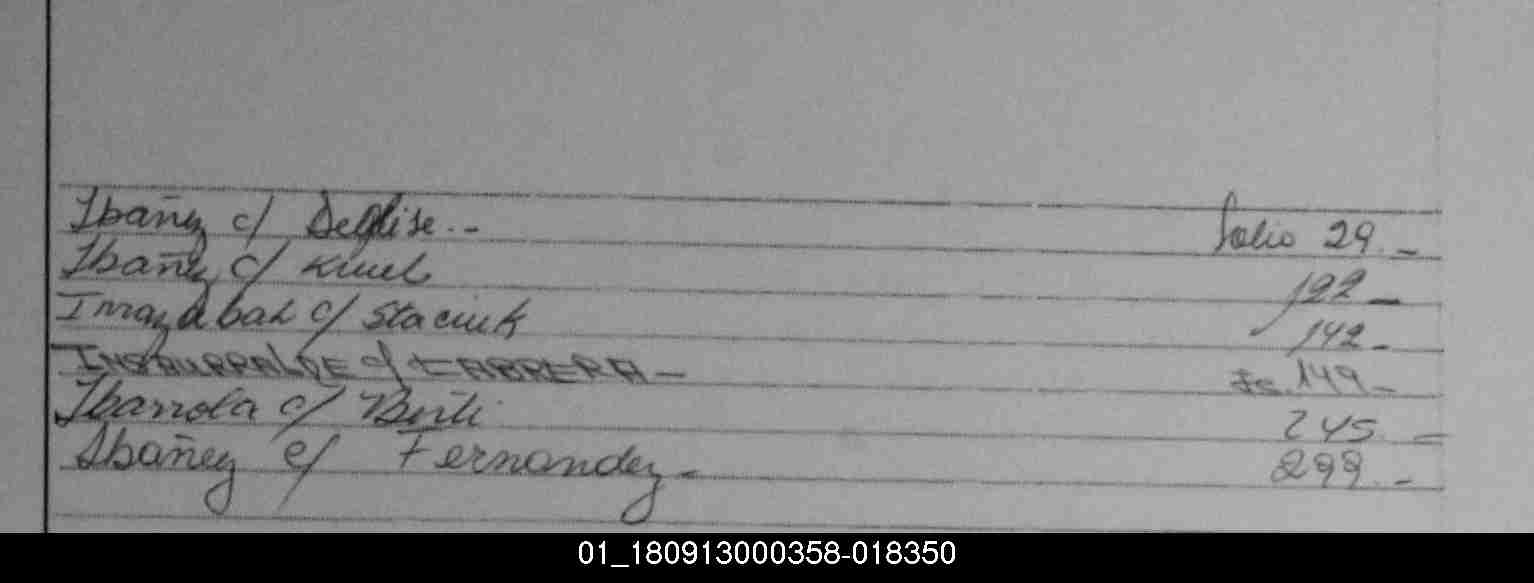 Ibañez c/ Deglise.- folio 29.-
Ibañez c/ Kuul 192-
Irrazabal c/ Staciuk 142-
INSAURRALDE c/ CABRERA- Fo. 149-
Ibarrola c/ Berti 245.-
Ibañez c/ Fernandez- 299.-
01_180913000358-018350